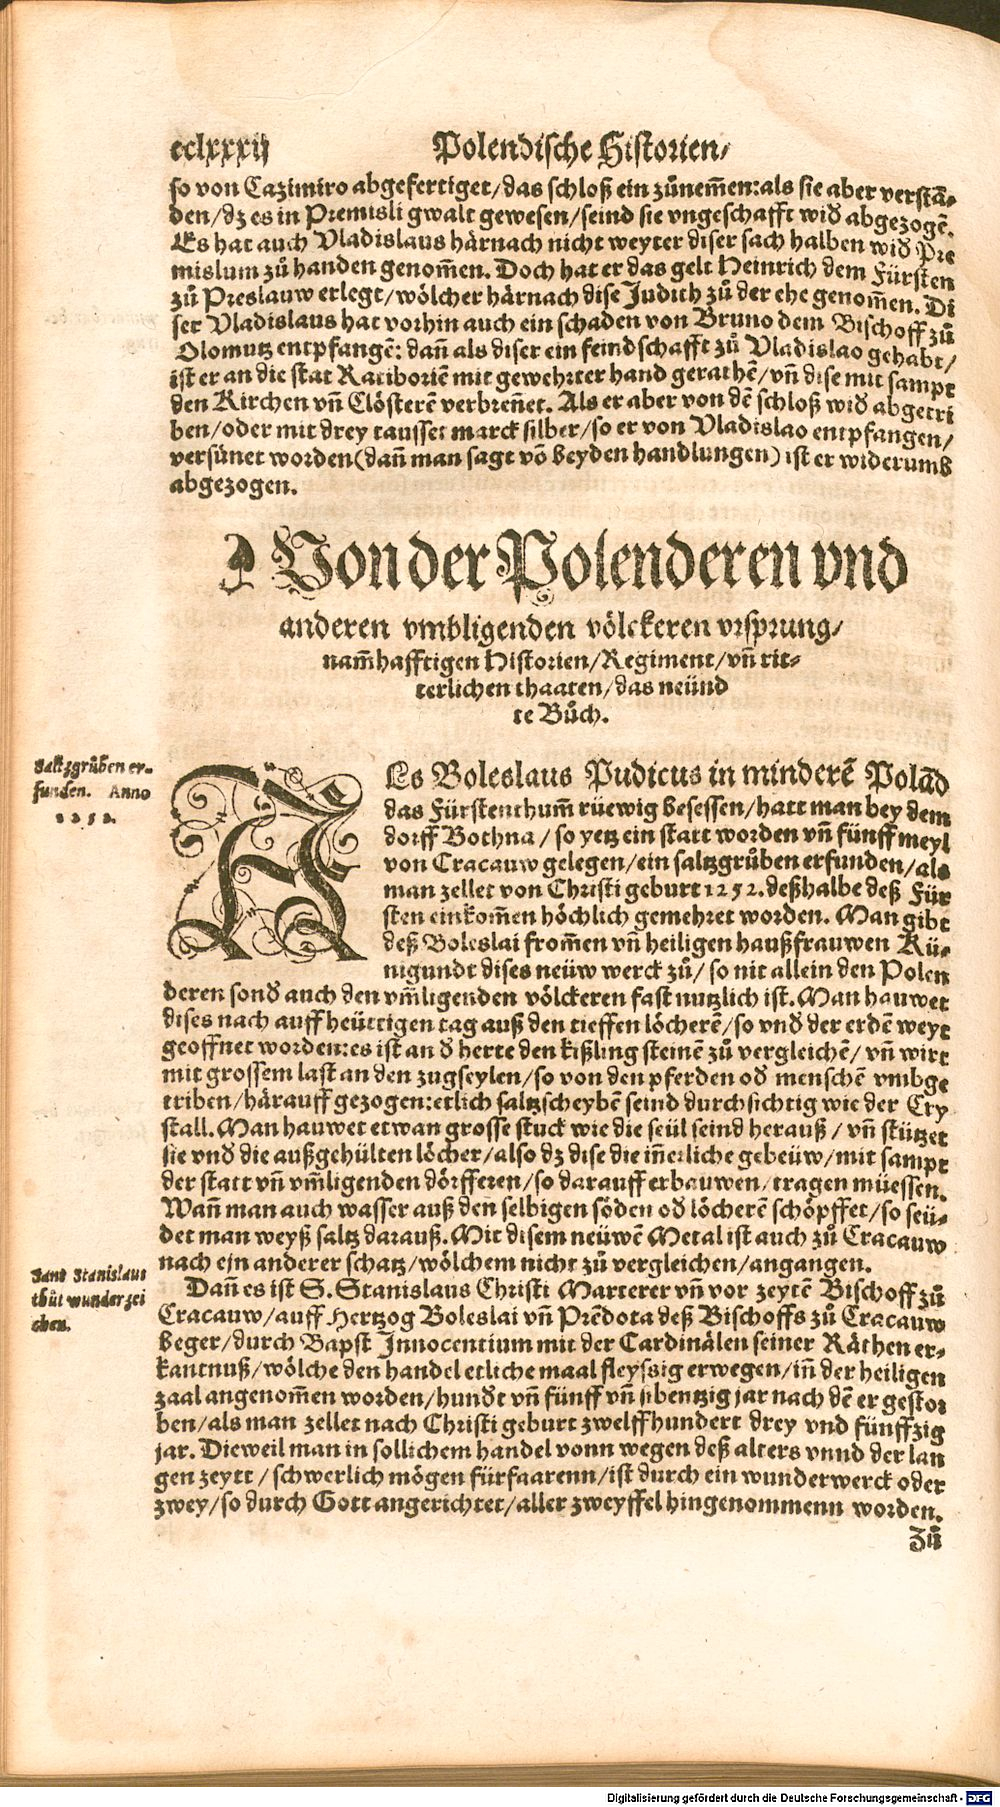 cclxxxij Polendische Historien/
so von Cazimiro abgefertiget/das schloß ein zůnem̃en:als sie aber verstã-
den/dz es in Premisli gwalt gewesen/seind sie vngeschafft wid̃ abgezogẽ.
Es hat auch Vladislaus härnach nicht weyter diser sach halben wid̃ Pre
mislum zů handen genom̃en. Doch hat er das gelt Heinrich dem Fürsten
zů Preslauw erlegt/wölcher härnach dise Judith zů der ehe genom̃en. Di
ser Vladislaus hat vorhin auch ein schaden von Bruno dem Bischoff zů
Olomutz entpfangẽ: dañ als diser ein feindschafft zů Vladislao gehabt/
ist er an die stat Ratiboriẽ mit gewehrter hand gerathẽ/vñ dise mit sampt
den Kirchen vñ Clösterẽ verbreñet. Als er aber von dẽ schloß wid̃ abgetri
ben/oder mit drey tausset marck silber/so er von Vladislao entpfangen/
versünet worden(dañ man sagt võ beyden handlungen) ist er widerumb
abgezogen.
Von der Polenderen vnd
anderen vmbligenden völckeren vrsprung/
nam̃hafftigen Historien/Regiment/vñ rit-
terlichen thaaten/das neünd
te Bůch.
Saltzgrůben er-
funden. Anno
1252.
ALs Boleslaus Pudicus in minderẽ Polãd
das Fürstenthum̃ rüewig besessen/hatt man bey dem
dorff Bochna/so yetz ein statt worden vñ fünff meyl
von Cracauw gelegen/ein saltzgrůben erfunden/als
man zellet von Christi geburt 1252. deßhalbe deß Für
sten einkom̃en höchlich gemehret worden. Man gibt
deß Boleslai from̃en vñ heiligen haußfrauwen Kü-
nigundt dises neüw werck zů/so nit allein den Polen
deren sond̃ auch den vm̃ligenden völckeren fast nutzlich ist. Man hauwet
dises nach auff heüttigen tag auß den tieffen löcherẽ/so vnd̃ der erdẽ weyt
geoffnet worden:es ist an d̃ herte den kißling steinẽ zů vergleichẽ/vñ wirt
mit grossem last an den zugseylen/so von den pferden od̃ menschẽ vmbge
triben/härauff gezogen:etlich saltzscheybẽ seind durchsichtig wie der Cry
stall. Man hauwet etwan grosse stuck wie die seül seind herauß/vñ stützet
sie vnd̃ die außgehülten löcher/also dz dise die iñerliche gebeüw/mit sampt
der statt vñ vm̃ligenden dörfferen/so darauff erbauwen/tragen müessen.
Wañ man auch wasser auß den selbigen söden od̃ löcherẽ schöpffet/so seü-
det man weyß saltz darauß. Mit disem neüwẽ Metal ist auch zů Cracauw
nach ein anderer schatz/wölchem nicht zů vergleichen/angangen.
Sant Stanislaus
thůt wunderzei
chen.
Dañ es ist S. Stanislaus Christi Marterer vñ vor zeytẽ Bischoff zů
Cracauw/auff Hertzog Boleslai vñ Prẽdota deß Bischoffs zů Cracauw
beger/durch Bapst Innocentium mit der Cardinälen seiner Räthen er-
kantnuß/wölche den handel etliche maal fleyssig erwegen/iñ der heiligen
zaal angenom̃en worden/hund̃t vñ fünff vñ sibentzig jar nach dẽ er gestor
ben/als man zellet nach Christi geburt zwelffhundert drey vnd fünffzig
jar. Dieweil man in sollichem handel vonn wegen deß alters vnnd der lan
gen zeytt/schwerlich mögen fürfaarenn/ist durch ein wunderwerck oder
zwey/so durch Gott angerichtet/aller zweyffel hingenommenn worden.
Zů
Digitalisierung gefördert durch die Deutsche Forschungsgemeinschaft - DFG